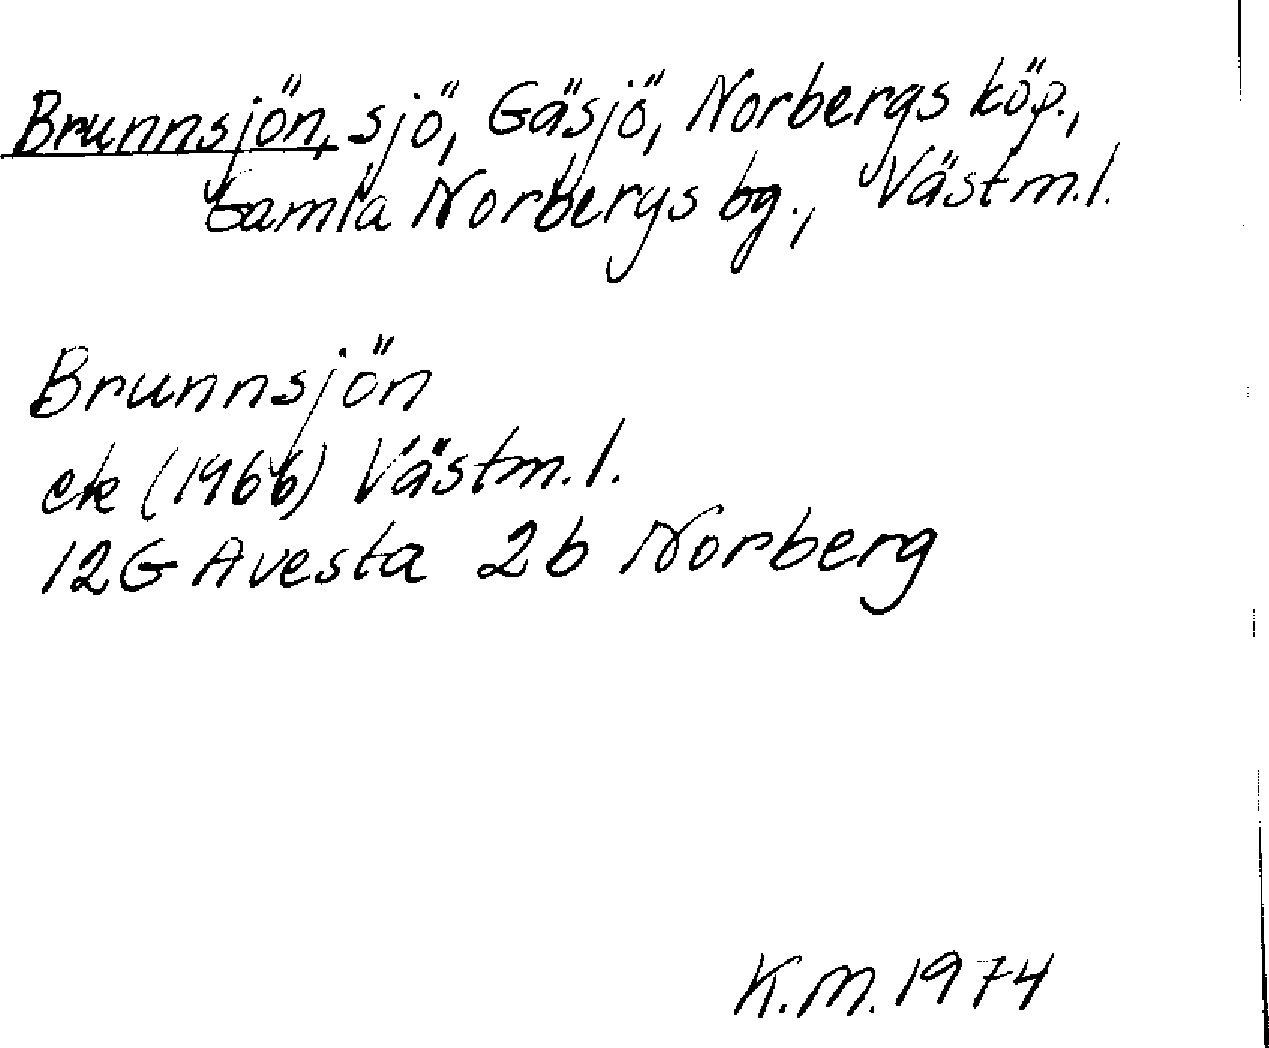 Brunnsjön, sjö, Gäsjö, Norbergs köp.,
Gamla Norbergs bg., Västm.l.
Brunnsjön
ek (1966) Västm.l.
12G Avesta 2b Norberg
K.M. 1974